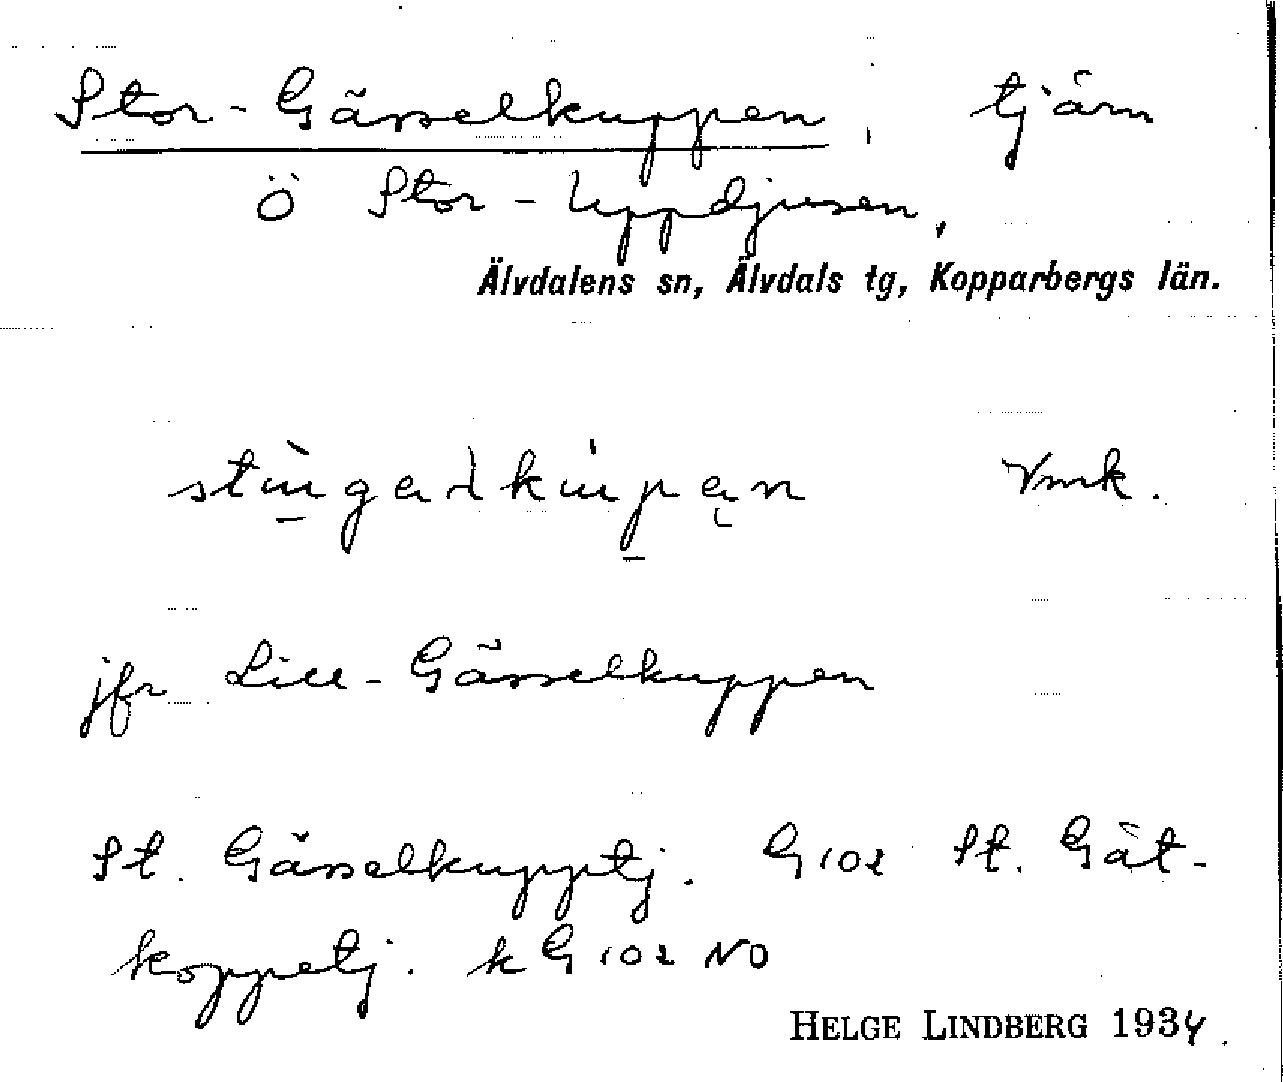 Stor-Gässelkuppen, tjärn
Ö Stor-Uppdjusen,
Älvdalens sn, Älvdals tg, Kopparbergs län.
Vmk.
jfr Lill-Gässelkuppen
St. Gässelkupptj. G 102 St. Gät-
koppetj. k G 102 NO
HELGE LINDBERG 1934.